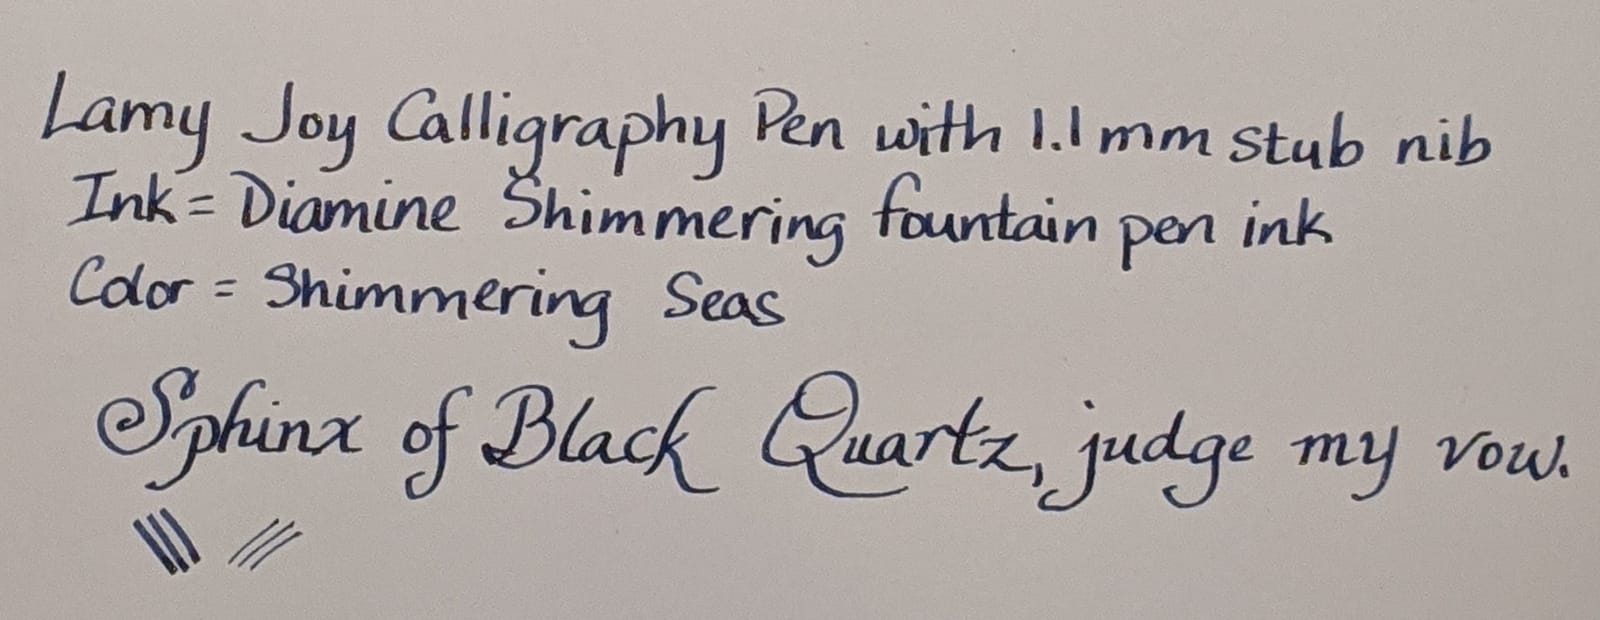 Lamy Joy Calligraphy Pen with 1.1mm stub nib
Ink = Diamine Shimmering fountain pen ink
Color = Shimmering Seas
Sphinx of Black Quartz, judge my vow.